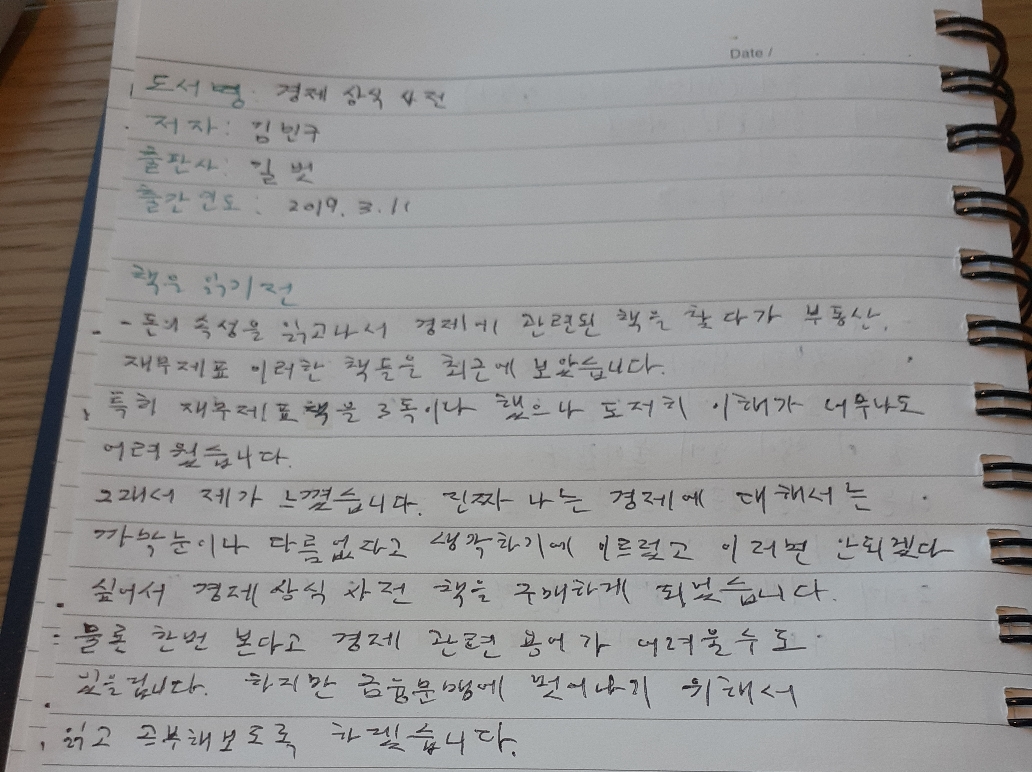 Date /
도서명: 경제 상식 사전
저자: 김민구
출판사: 길벗
출간연도: 2019. 3. 11
책을 읽기전
- 돈의 속성을 읽고나서 경제에 관련된 책을 찾다가 부동산,
재무제표 이러한 책들을 최근에 보았습니다.
특히 재무제표책을 3독이나 했으나 도저히 이해가 너무나도
어려웠습니다.
그래서 제가 느꼈습니다. 진짜 나는 경제에 대해서는
까막눈이나 다름없다고 생각하기에 이르렀고 이러면 안되겠다
싶어서 경제상식 사전 책을 구매하게 되었습니다.
물론 한번 본다고 경제 관련 용어가 어려울수도
있을겁니다. 하지만 금융문맹에 벗어나기 위해서
읽고 공부해보도록 하겠습니다.